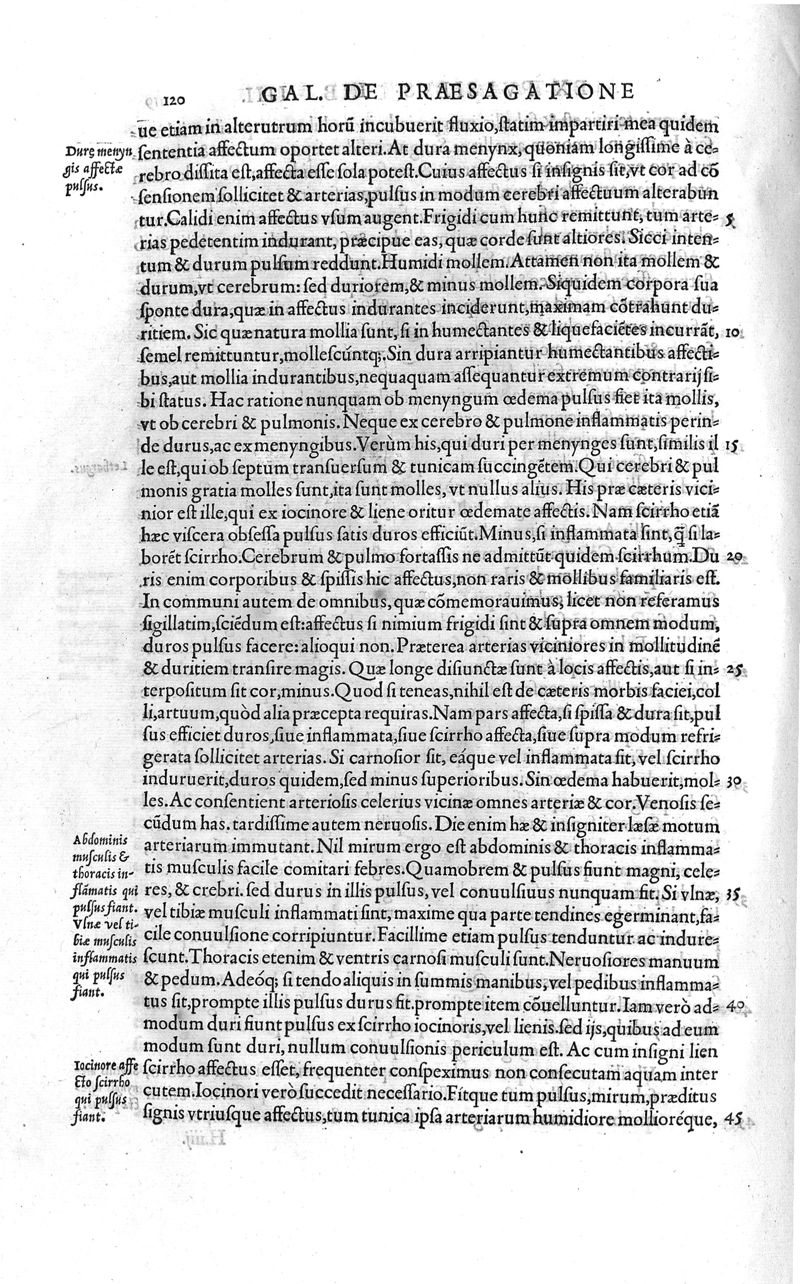 120 GAL. DE PRAESAGATIONE
ue etiam in alterutrum horũ incubuerit fluxio, ſtatim impartiri mea quidem
ſententia affectum oportet alteri. At dura menynx, quoniam longiſſime à ce⸗
rebro diſſita eſt, affecta eſſe ſola poteſt. Cuius affectus ſi inſignis ſit, vt cor ad cõ
ſenſionem ſollicitet & arterias, pulſus in modum cerebri affectuum alterabun
tur. Calidi enim affectus vſum augent. Frigidi cum hunc remittunt, tum arte⸗ 5
rias pedetentim indurant, præcipue eas, quæ corde ſunt altiores. Sicci inten⸗
tum & durum pulſum reddunt. Humidi mollem. Attamen non ita mollem &
durum, vt cerebrum: ſed duriorem, & minus mollem. Siquidem corpora ſua
ſponte dura, quæ in affectus indurantes inciderunt, maximam cõtrahunt du⸗
ritiem. Sic quæ natura mollia ſunt, ſi in humectantes & liquefaciẽtes incurrãt, 10
ſemel remittuntur, molleſcúntq;. Sin dura arripiantur humectantibus affecti⸗
bus, aut mollia indurantibus, nequaquam aſſequantur extremum contrarij ſi⸗
bi ſtatus. Hac ratione nunquam ob menyngum œdema pulſus fiet ita mollis,
vt ob cerebri & pulmonis. Neque ex cerebro & pulmone inflammatis perin⸗
de durus, ac ex menyngibus. Verùm his, qui duri per menynges ſunt, ſimilis il 15
le eſt, qui ob ſeptum tranſuerſum & tunicam ſuccingẽtem. Qui cerebri & pul
monis gratia molles ſunt, ita ſunt molles, vt nullus alius. His præ cæteris vici⸗
nior eſt ille, qui ex iocinore & liene oritur œdemate affectis. Nam ſcirrho etiã
hæc viſcera obſeſſa pulſus ſatis duros efficiũt. Minus, ſi inflammata ſint, q̃ ſi la⸗
borẽt ſcirrho. Cerebrum & pulmo fortaſſis ne admittũt quidem ſcirrhum. Du 20
ris enim corporibus & ſpiſſis hic affectus, non raris & mollibus familiaris eſt.
In communi autem de omnibus, quæ cõmemorauimus, licet non referamus
ſigillatim, ſciẽdum eſt: affectus ſi nimium frigidi ſint & ſupra omnem modum,
duros pulſus facere: alioqui non. Præterea arterias viciniores in mollitudinẽ
& duritiem tranſire magis. Quæ longe diſiunctæ ſunt à locis affectis, aut ſi in⸗ 25
terpoſitum ſit cor, minus. Quod ſi teneas, nihil eſt de cæteris morbis faciei, col
li, artuum, quòd alia præcepta requiras. Nam pars affecta, ſi ſpiſſa & dura ſit, pul
ſus efficiet duros, ſiue inflammata, ſiue ſcirrho affecta, ſiue ſupra modum refri⸗
gerata ſollicitet arterias. Si carnoſior ſit, eáque vel inflammata ſit, vel ſcirrho
induruerit, duros quidem, ſed minus ſuperioribus. Sin œdema habuerit, mol⸗ 30
les. Ac conſentient arterioſis celerius vicinæ omnes arteriæ & cor. Venoſis ſe⸗
cũdum has. tardiſſime autem neruoſis. Die enim hæ & inſigniter læſæ motum
arteriarum immutant. Nil mirum ergo eſt abdominis & thoracis inflamma⸗
tis muſculis facile comitari febres. Quamobrem & pulſus fiunt magni, cele⸗
res, & crebri. ſed durus in illis pulſus, vel conuulſiuus nunquam fit. Si vlnæ, 35
vel tibiæ muſculi inflammati ſint, maxime qua parte tendines egerminant, fa⸗
cile conuulſione corripiuntur. Facillime etiam pulſus tenduntur ac indure⸗
ſcunt. Thoracis etenim & ventris carnoſi muſculi ſunt. Neruoſiores manuum
& pedum. Adeóq; ſi tendo aliquis in ſummis manibus, vel pedibus inflamma⸗
tus ſit, prompte illis pulſus durus fit. prompte item cõuelluntur. Iam verò ad⸗ 40
modum duri fiunt pulſus ex ſcirrho iocinoris, vel lienis. ſed ijs, quibus ad eum
modum ſunt duri, nullum conuulſionis periculum eſt. Ac cum inſigni lien
ſcirrho affectus eſſet, frequenter conſpeximus non conſecutam aquam inter
cutem. Iocinori verò ſuccedit neceſſario. Fítque tum pulſus, mirum, præditus
ſignis vtriuſque affectus, tum tunica ipſa arteriarum humidiore mollioréque, 45
Durę menyn
gis affectæ
pulſus.
Abdominis
muſculis &
thoracis in⸗
flãmatis qui
pulſus fiant.
Vlnæ vel ti⸗
biæ muſculis
inflammatis
qui pulſus
fiant.
Iocinore affe
cto ſcirrho
qui pulſus
fiant.